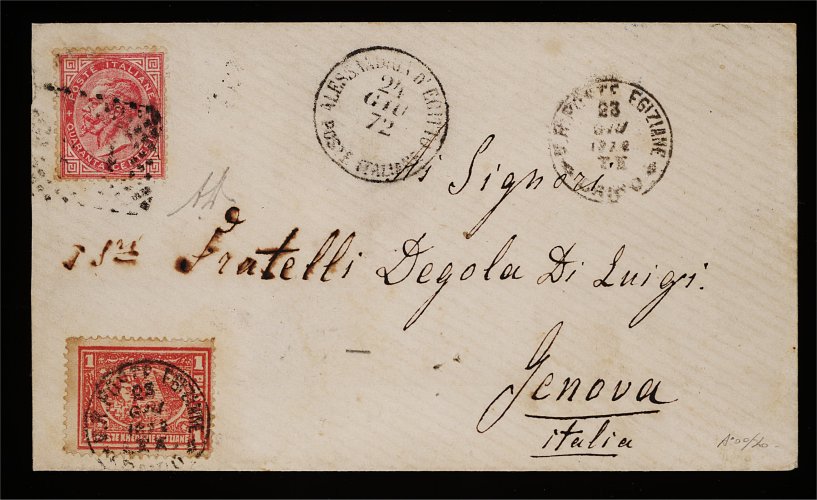 POSTE ITALIANE
QUARANTA CENT
ALESSANDRIA D'EGITTO
24
GIU
72
POSTE ITALIANE
V.R. POSTE EGIZIANE
23
GIU
1872
T.E
CAIRO
Signori
Fratelli Degola Di Luigi.
Genova
italia
1
POSTE KHEDEUIE EGIZIANE
V.R. POSTE EGIZIANE
23
GIU
1872
CAIRO